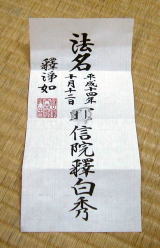 法名
平成十四年
十月十二日
信院釋白秀
釋淨如